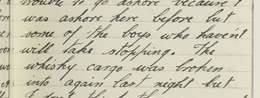 trouble to go ashore because I
was ashore here before but
some of the boys who haven't
will take stopping. The
whisky cargo was broken
into again last night but